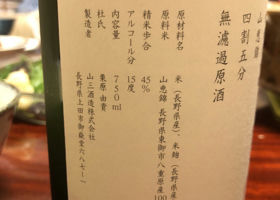 山恵錦
四割五分
無濾過原酒
原材料名 米(長野県産)、米麹(長野県産
原料米 山恵錦 長野県東御市八重原産100
精米歩合 45%
アルコール分 15度
内容量 750ml
杜氏 栗原由貴
製造者 山三酒造株式会社
長野県上田市御嶽堂六八七ー